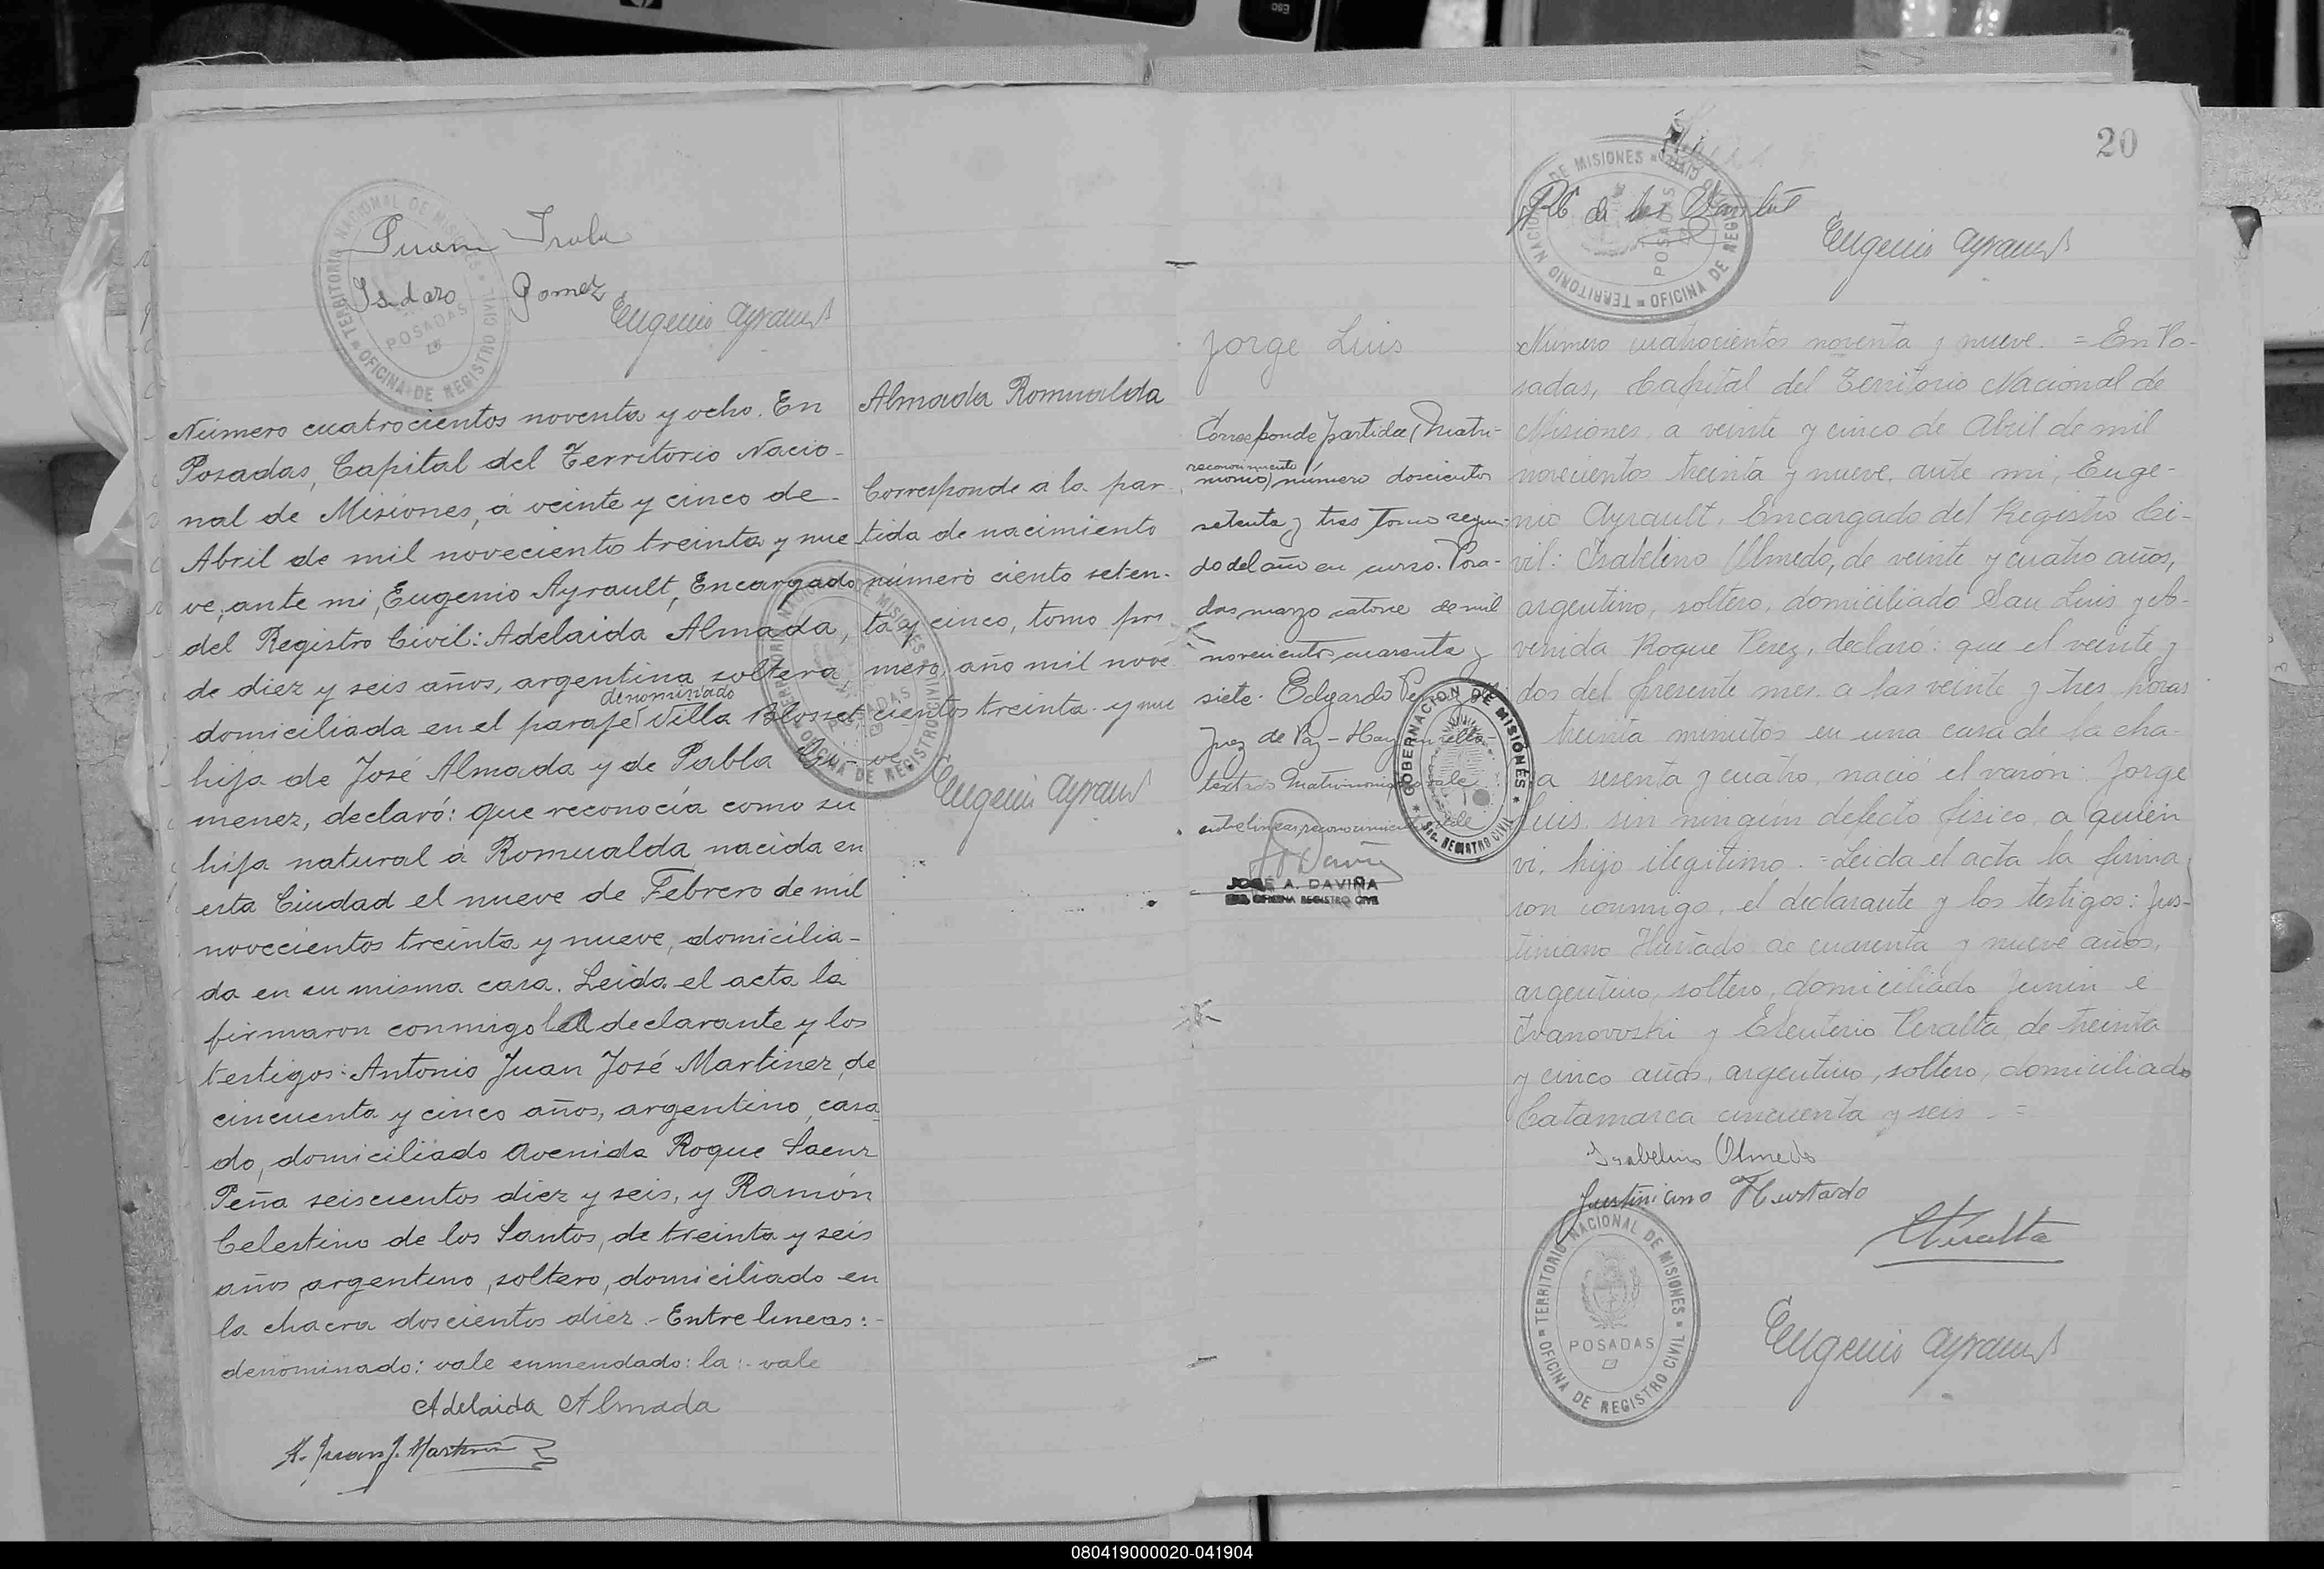 Juan Irala
Isidoro Gomez
Eugenio Ayrault
TERRITORIO NACIONAL DE MISIONES
OFICINA DE REGISTRO CIVIL
POSADAS
Número cuatrocientos noventa y ocho. En
Posadas, Capital del Territorio Nacio-
nal de Misiones, á veinte y cinco de
Abril de mil novecientos treinta y nue
ve, ante mi, Eugenio Ayrault, Encargado
del Registro Civil: Adelaida Almada,
de diez y seis años, argentina soltera,
denominado
domiciliada en el paraje Villa Blosset,
hija de José Almada y de Pabla Gi-
menez, declaró: que reconocía como su
hija natural á Romualda nacida en
esta Ciudad el nueve de Febrero de mil
novecientos treinta y nueve, domicilia-
da en su misma casa. Leida el acta la
firmaron conmigo la declarante y los
testigos: Antonio Juan José Martinez, de
cincuenta y cinco años, argentino, casa
do, domiciliado Avenida Roque Saenz
Peña seiscientos diez y seis, y Ramón
Celestino de los Santos, de treinta y seis
años, argentino, soltero, domiciliado en
la chacra doscientos diez.- Entre lineas:-
denominado: vale enmendado: la:- vale
Adelaida Almada
A. Juan J. Martinez
Almada Romualda
Corresponde a la par
tida de nacimiento
número ciento seten-
ta y cinco, tomo pri
mero, año mil nove
cientos treinta y nue
ve.
Eugenio Ayrault
20
de los Santos
Eugenio Ayrault
TERRITORIO NACIONAL DE MISIONES
OFICINA DE REGISTRO CIVIL
POSADAS
Jorge Luis
Corresponde partida (Matri-
reconocimiento
monio) número doscientos
setenta y tres Tomo segun-
do del año en curso. Posa-
das marzo catorce de mil
novecientos cuarenta y
siete. Edgardo
Juez de Paz - Hay un sello
testado Matrimonio, no vale
entrelineas, reconocimiento vale
GOBERNACION DE MISIONES
SEC. REGISTRO CIVIL
JOSÉ A. DAVIÑA
OFICINA REGISTRO CIVIL
Número cuatrocientos noventa y nueve. = En Po-
sadas, Capital del Territorio Nacional de
Misiones, a veinte y cinco de Abril de mil
novecientos treinta y nueve, ante mi, Euge-
nio Ayrault, Encargado del Registro Ci-
vil: Isabelino Olmedo, de veinte y cuatro años,
argentino, soltero, domiciliado San Luis y A-
venida Roque Perez, declaró: que el veinte y
dos del presente mes, a las veinte y tres horas
treinta minutos en una casa de la cha-
ra sesenta y cuatro, nació el varón: Jorge
Luis, sin ningún defecto físico, a quien
vi, hijo ilegítimo. = Leida el acta la firma
ron conmigo, el declarante y los testigos: Jus-
tiniano Hurtado de cuarenta y nueve años,
argentino, soltero, domiciliado Junin e
Ivanovoski y Eleuterio Peralta de treinta
y cinco años, argentino, soltero, domiciliado
Catamarca cincuenta y seis. =
Isabelino Olmedo
Justiniano Hurtado
EPeralta
Eugenio Ayrault
TERRITORIO NACIONAL DE MISIONES
OFICINA DE REGISTRO CIVIL
POSADAS
080419000020-041904